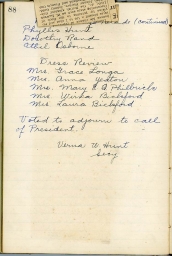 88
(continued)
Phyllis Hunt
Dorothy Rand
Ethel Osborne
Dress Review
Mrs. Grace Longa
Mrs. Anna Yeaton
Mrs. Mary E A Philbrick
Mrs. Wirha Bickford
Mrs. Laura Bickford
Voted to adjourn to call
of President.
Verna W Hunt
Secy